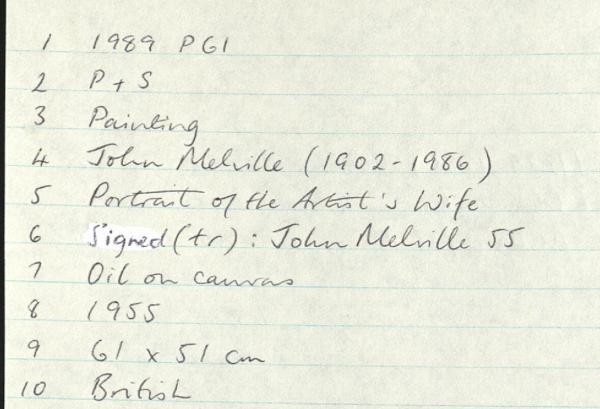 1 1989 PG1
2 P + S
3 Painting
4 John Melville (1902-1986)
5 Portrait of the Artist's Wife
6 Signed (tr): John Melville 55
7 Oil on canvas
8 1955
9 61 x 51 cm
10 British